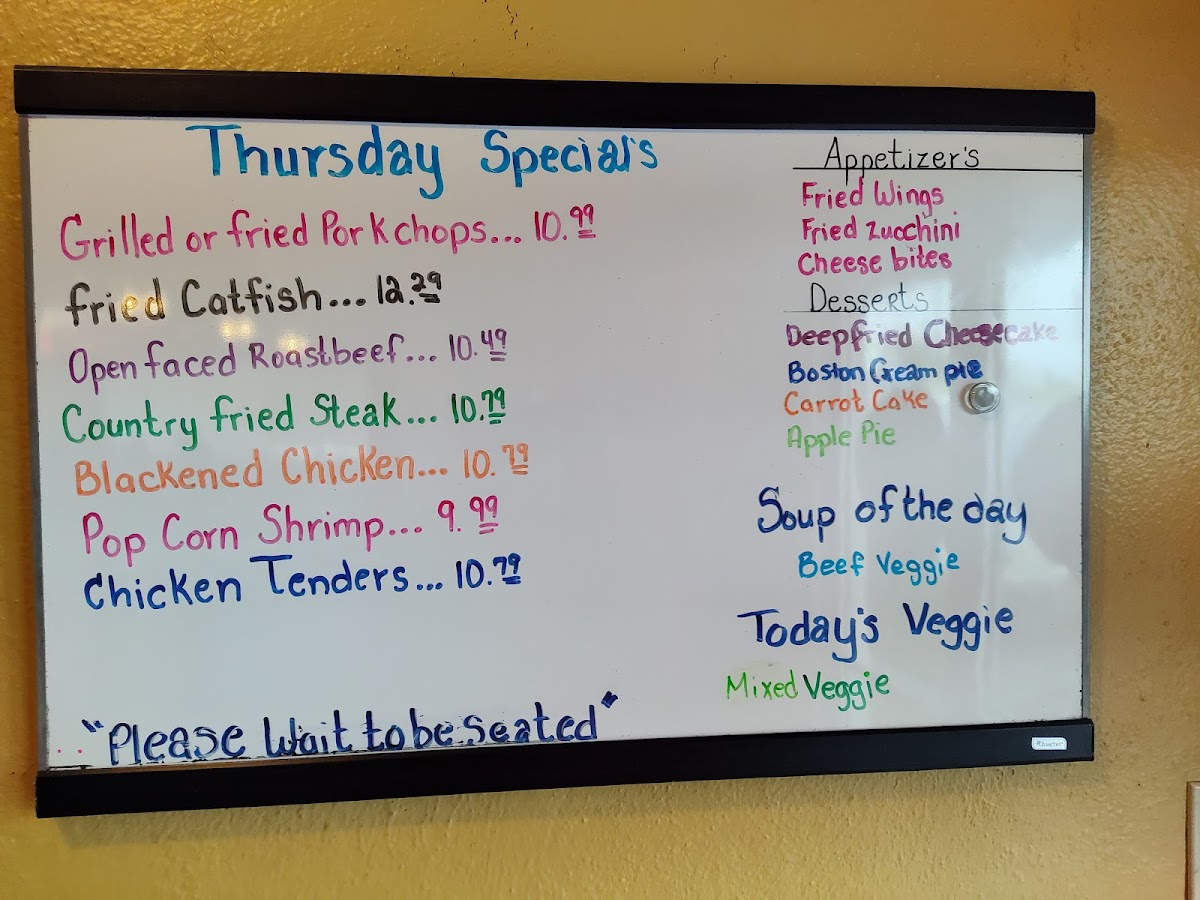 Thursday Special's
Grilled or fried Porkchops... 10.99
fried Catfish... 12.29
Open faced Roastbeef... 10.49
Country fried Steak... 10.79
Blackened Chicken... 10.79
Pop Corn Shrimp... 9.99
Chicken Tenders... 10.79
"Please Wait to be Seated"
Appetizer's
Fried Wings
Fried Zucchini
Cheese bites
Desserts
Deepfried Cheesecake
Boston Cream pie
Carrot Cake
Apple Pie
Soup of the day
Beef Veggie
Today's Veggie
Mixed Veggie